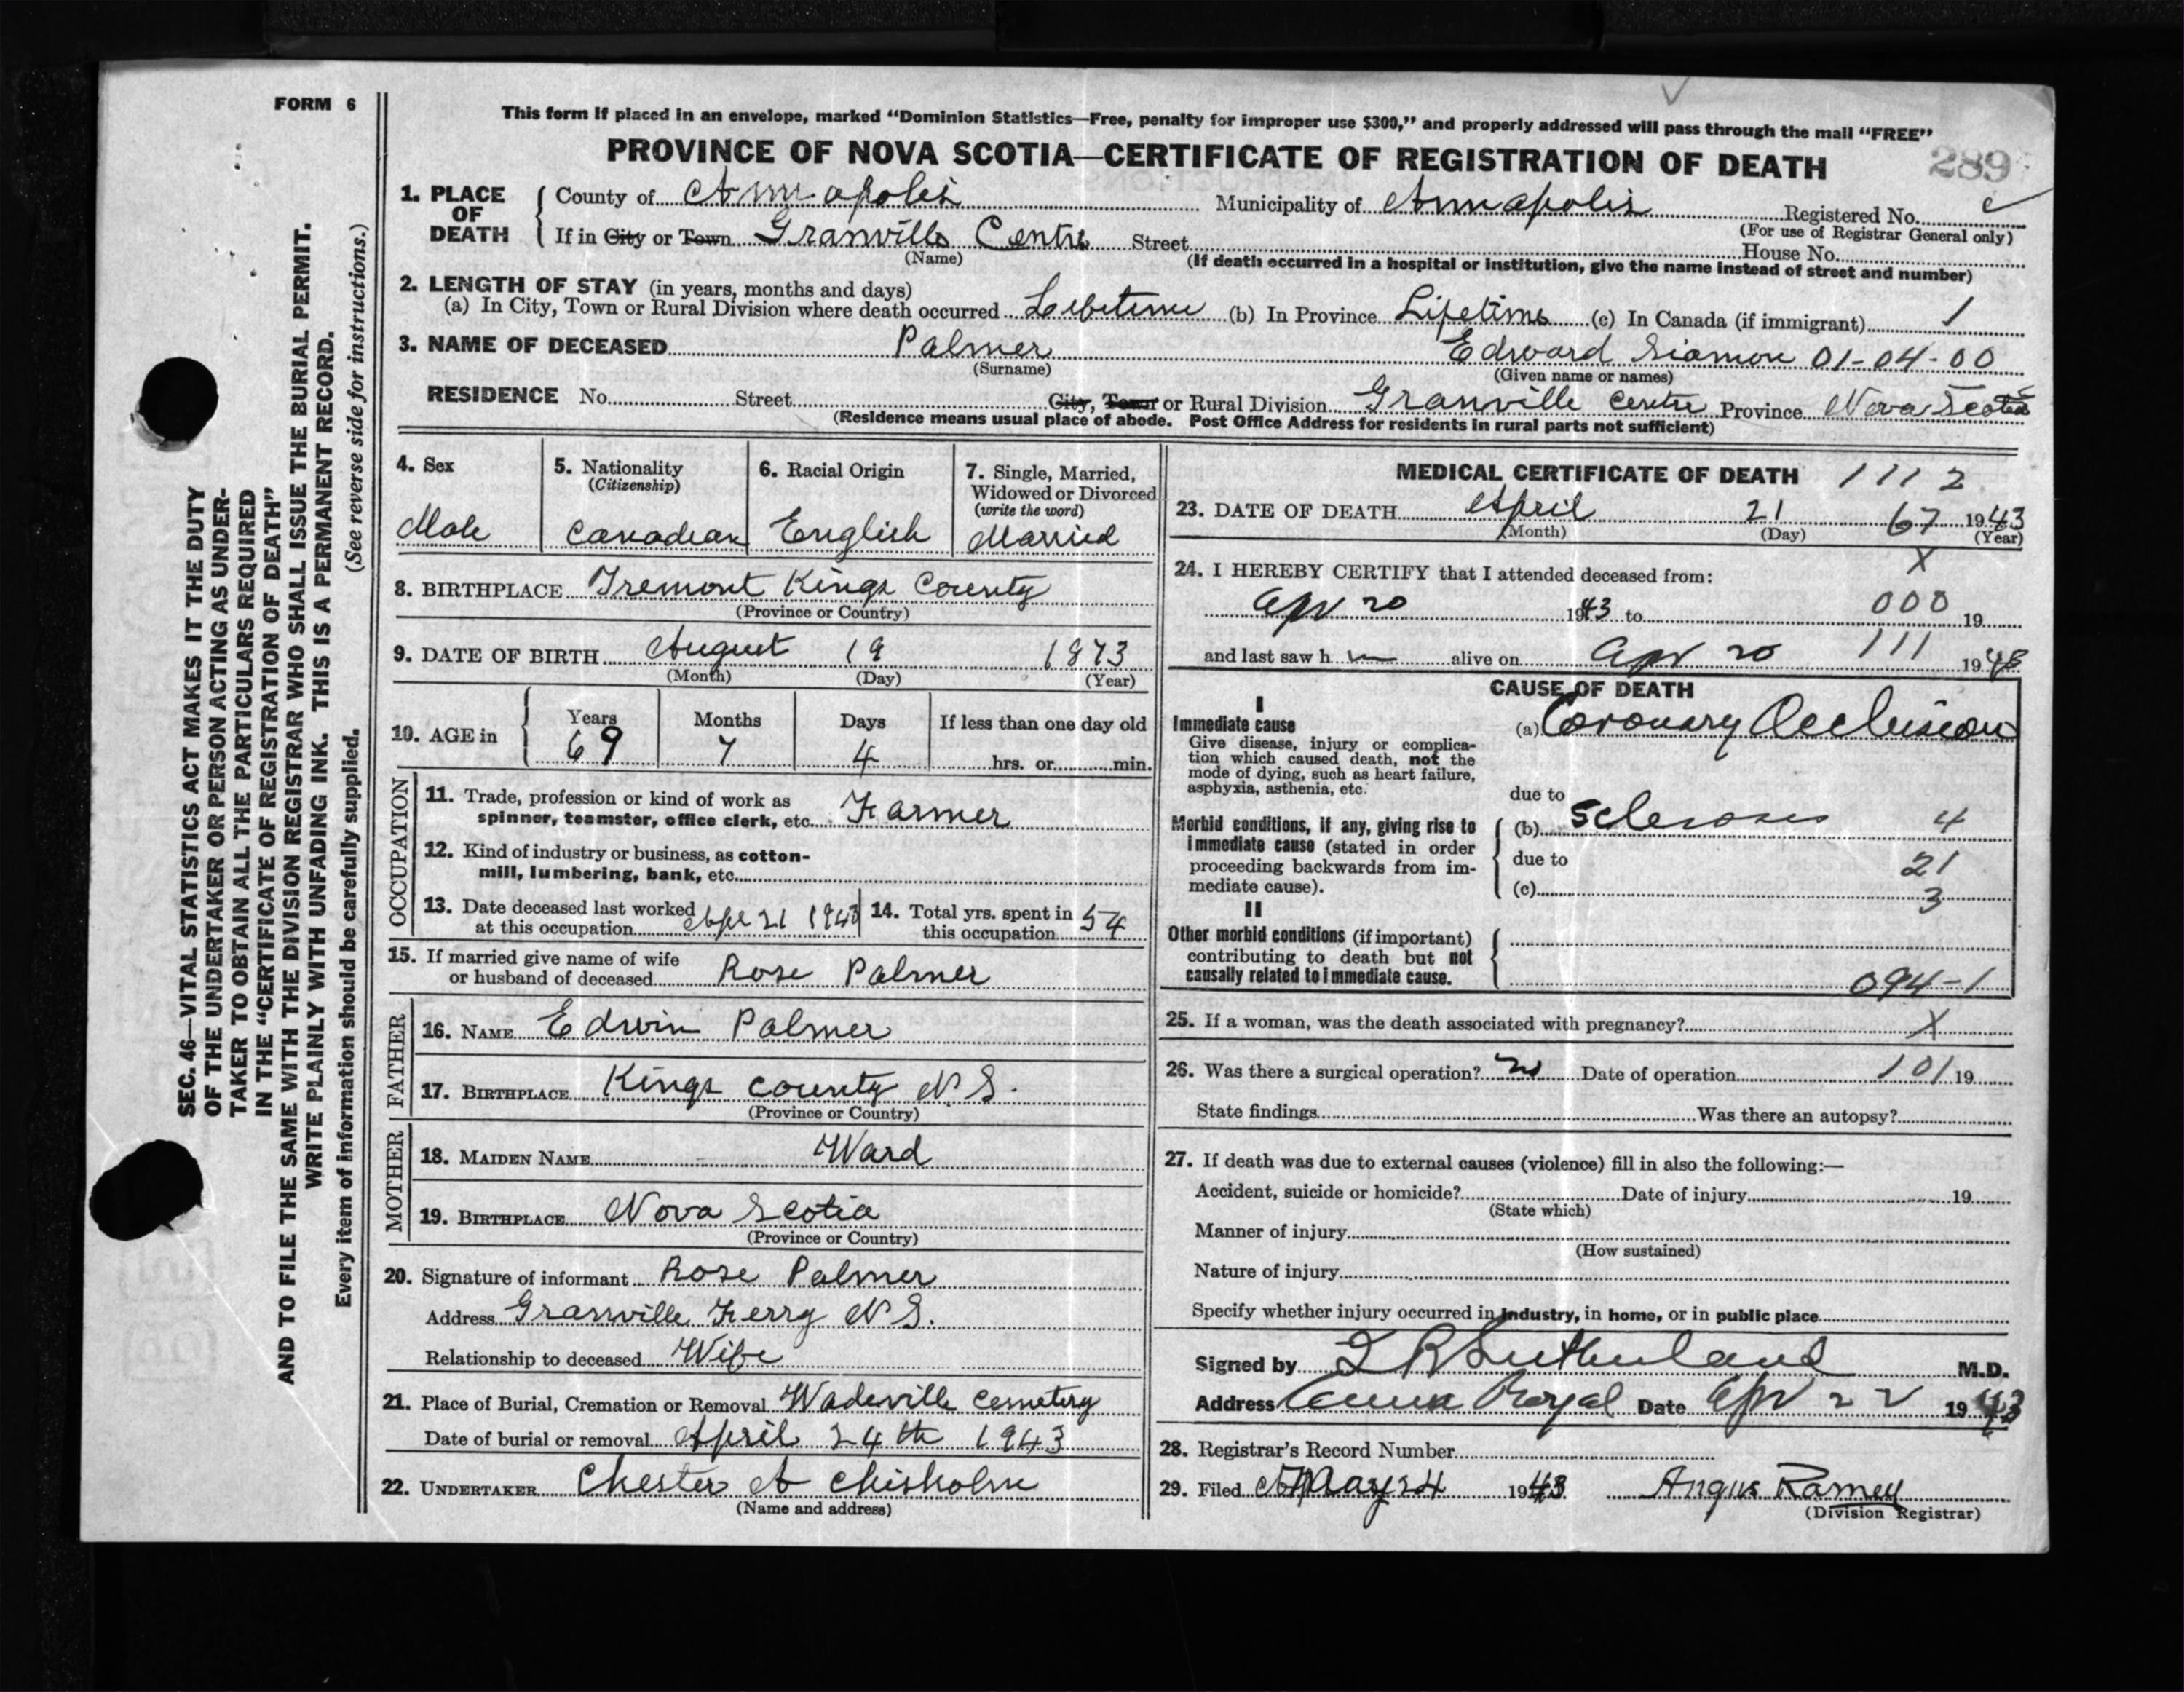 FORM 6
This form if placed in an envelope, marked “Dominion Statistics—Free, penalty for improper use $300,” and properly addressed will pass through the mail “FREE”
PROVINCE OF NOVA SCOTIA—CERTIFICATE OF REGISTRATION OF DEATH
289
1. PLACE OF DEATH
County of Annapolis Municipality of Annapolis Registered No.
(For use of Registrar General only)
If in City or Town Granville Centre Street House No.
(Name)
(If death occurred in a hospital or institution, give the name instead of street and number)
2. LENGTH OF STAY (in years, months and days)
(a) In City, Town or Rural Division where death occurred Lifetime (b) In Province Lifetime (c) In Canada (if immigrant) 1
3. NAME OF DECEASED Palmer Edward 01-04-00
(Surname) (Given name or names)
RESIDENCE No. Street City, Town or Rural Division Granville Centre Province Nova Scotia
(Residence means usual place of abode. Post Office Address for residents in rural parts not sufficient)
4. Sex
Male
5. Nationality
(Citizenship)
Canadian
6. Racial Origin
English
7. Single, Married,
Widowed or Divorced
(write the word)
Married
8. BIRTHPLACE Tremont Kings County
(Province or Country)
9. DATE OF BIRTH August 19 1873
(Month) (Day) (Year)
10. AGE in
Years Months Days If less than one day old
69 7 4 hrs. or min.
OCCUPATION
11. Trade, profession or kind of work as
spinner, teamster, office clerk, etc. Farmer
12. Kind of industry or business, as cotton-
mill, lumbering, bank, etc.
13. Date deceased last worked
at this occupation Apl 21 1943
14. Total yrs. spent in
this occupation 54
15. If married give name of wife
or husband of deceased Rose Palmer
FATHER
16. NAME Edwin Palmer
17. BIRTHPLACE Kings County N.S.
(Province or Country)
MOTHER
18. MAIDEN NAME Ward
19. BIRTHPLACE Nova Scotia
(Province or Country)
20. Signature of informant Rose Palmer
Address Granville Ferry N S.
Relationship to deceased Wife
21. Place of Burial, Cremation or Removal Wadeville Cemetery
Date of burial or removal April 24th 1943
22. UNDERTAKER Chester A Chisholm
(Name and address)
MEDICAL CERTIFICATE OF DEATH 1112
23. DATE OF DEATH April 21 67 1943
(Month) (Day) (Year)
X
24. I HEREBY CERTIFY that I attended deceased from:
Apr 20 1943 to 000 19
and last saw h im alive on Apr 20 111 1943
CAUSE OF DEATH
I
Immediate cause
Give disease, injury or complica-
tion which caused death, not the
mode of dying, such as heart failure,
asphyxia, asthenia, etc.
(a) Coronary Occlusion
due to
Morbid conditions, if any, giving rise to
immediate cause (stated in order
proceeding backwards from im-
mediate cause).
(b) Sclerosis 4
due to 21
(c) 3
II
Other morbid conditions (if important)
contributing to death but not
causally related to immediate cause.
094-1
25. If a woman, was the death associated with pregnancy? X
26. Was there a surgical operation? no Date of operation 101 19
State findings Was there an autopsy?
27. If death was due to external causes (violence) fill in also the following:—
Accident, suicide or homicide? Date of injury 19
(State which)
Manner of injury
(How sustained)
Nature of injury
Specify whether injury occurred in industry, in home, or in public place
Signed by Sutherland M.D.
Address Anna Royal Date Apr 22 1943
28. Registrar's Record Number
29. Filed May 24 1943 Angus Ramey
(Division Registrar)
SEC. 46—VITAL STATISTICS ACT MAKES IT THE DUTY
OF THE UNDERTAKER OR PERSON ACTING AS UNDER-
TAKER TO OBTAIN ALL THE PARTICULARS REQUIRED
IN THE “CERTIFICATE OF REGISTRATION OF DEATH”
AND TO FILE THE SAME WITH THE DIVISION REGISTRAR WHO SHALL ISSUE THE BURIAL PERMIT.
WRITE PLAINLY WITH UNFADING INK. THIS IS A PERMANENT RECORD.
Every item of information should be carefully supplied. (See reverse side for instructions.)